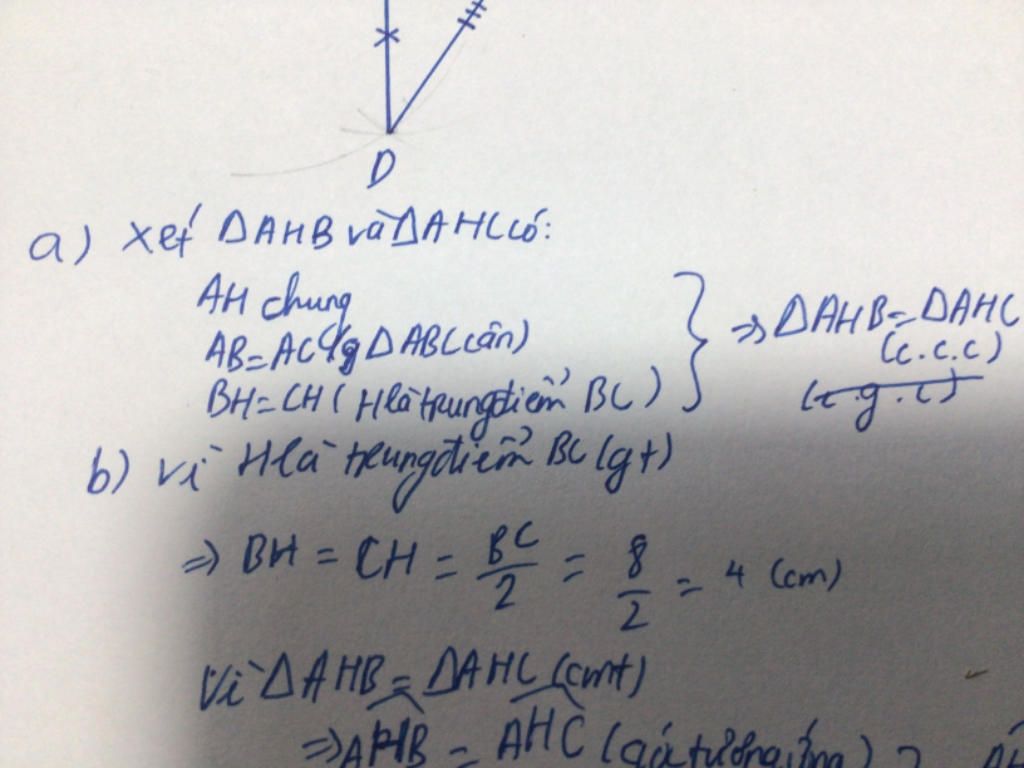 D
a) Xét ΔAHB và ΔAHC có:
AH chung
AB=AC (vì ΔABC cân)
BH=CH (H là trung điểm BC)
⇒ ΔAHB=ΔAHC
(c.c.c)
(c.g.c)
b) Vì H là trung điểm BC (gt)
⇒ BH = CH = BC/2 = 8/2 = 4 (cm)
Vì ΔAHB = ΔAHC (cmt)
⇒ AHB = AHC (góc tương ứng)